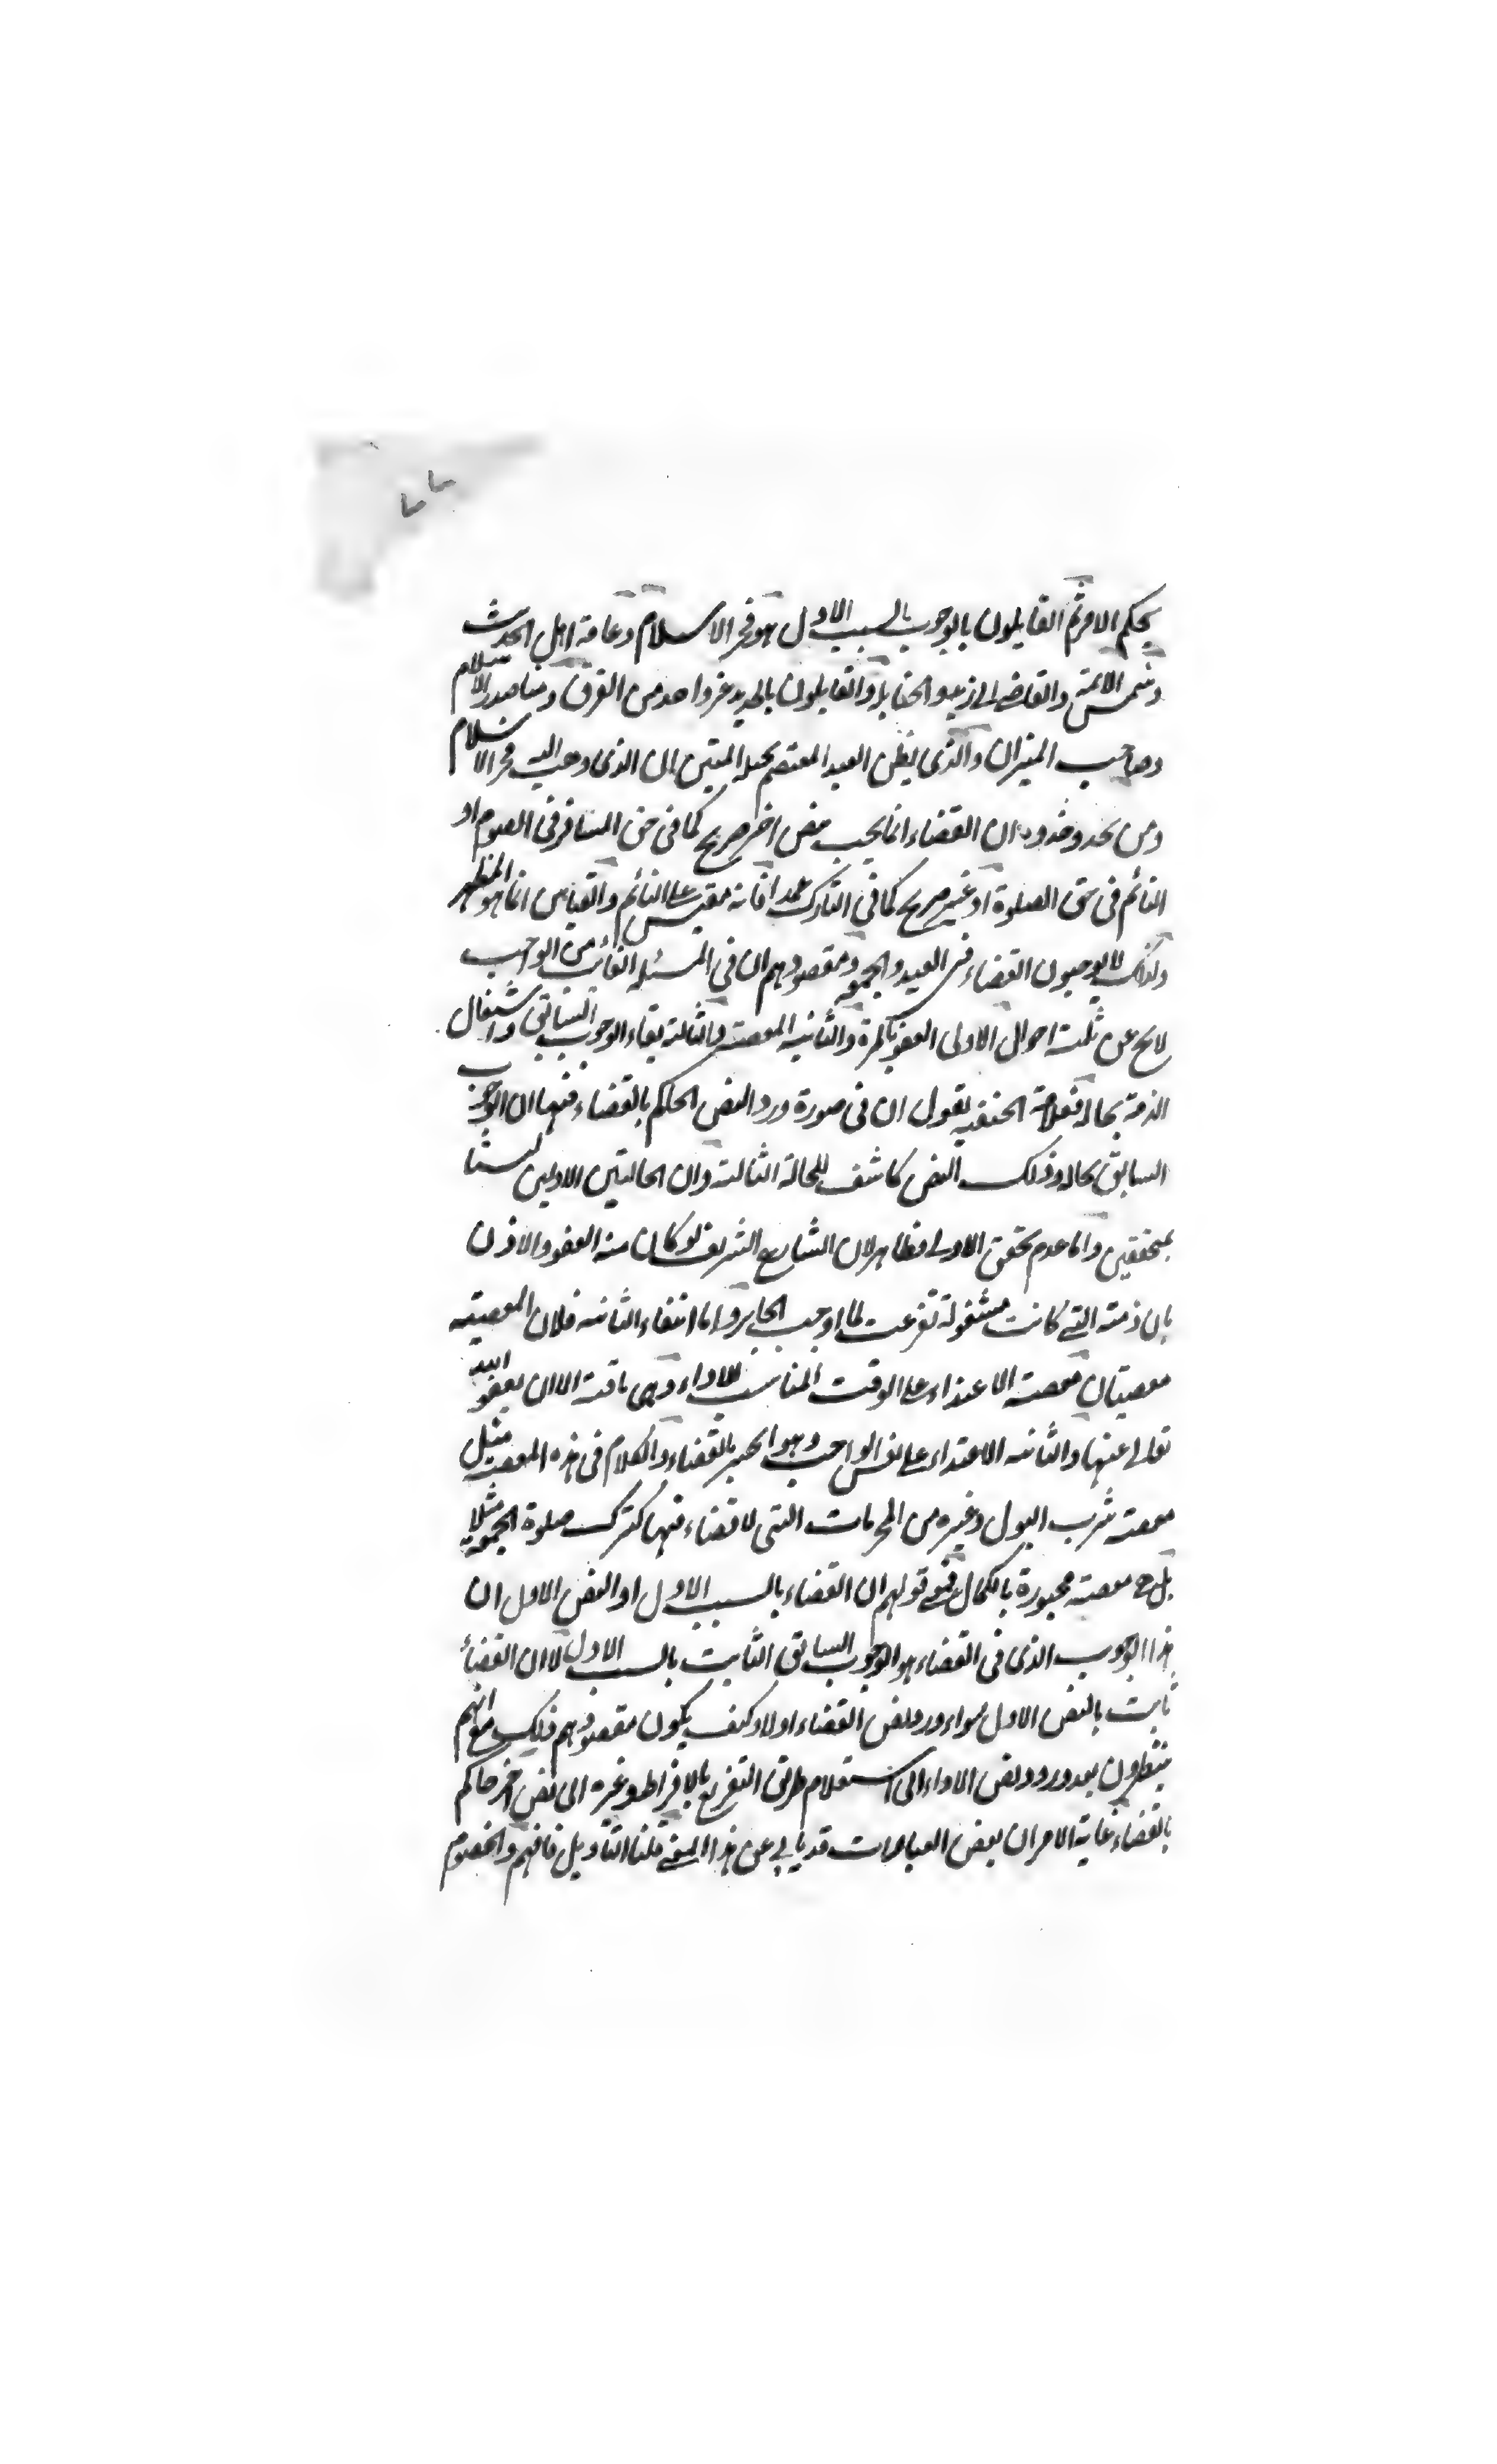 ٢٢
بحكم الامر ثم القايلون بالوجوب بالسبب الاول هو فخر الاسلام وعامة اهل الحديث
وشمس الائمة والقاضي ابي زيد والحنابلة والقايلون بالجديد غير واحد من الفرق ومنا صدر الاسلام
وصاحب الميزان والذي يظن العبد المعتصم بحبله المتين ان الذي ذهب اليه فخر الاسلام
ومن يحذو حذوه ان القضاء انما يجب بنص اخر صريح كما في حق المسافر في الصوم او
النائم في حق الصلوة او غير صريح كما في التارك عمدا فانه مقيس على النائم والقياس انما هو المظهر
ولذلك لا يوجبون القضاء في العيد والجمعة ومقصودهم ان في المسئلة الفائت من الواجب
لا يخ عن ثلث احوال الاولى العفو بالمرة والثانية المعصية والثالثة بقاء الوجوب السابق واشتغال
الذمة بحاله فعلامة الحنفية يقول ان في صورة ورد النص الحاكم بالقضاء فيها ان الوجوب
السابق بحاله وذلك النص كاشف للحالة الثالثة وان الحالتين الاوليين ليستا
بمتحققين واما عدم تحقق الاولى فظاهر لان الشارع الشريف لو كان منه العفو والاذن
بان ذمته التي كانت مشغولة تفرغت لما اوجب الجابر واما انتفاء الثانية فلان المعصية
معصيتان معصية الاعتداء على الوقت المناسب للاداء وهي باقية الا ان يعفو الله
تعالى عنها والثانية الاعتداء على نفس الواجب وهو الجبر بالقضاء والكلام في هذه المعصية مثل
معصية شرب البول وغيره من المحرمات التي لا قضاء فيها كترك صلوة الجمعة مثلا
بل ح معصية مجبورة بالكمال فمعنى قولهم ان القضاء بالسبب الاول او النص الاول ان
هذا الوجوب الذي في القضاء هو الوجوب السابق الثابت بالسبب الاول لا ان القضاء
ثابت بالنص الاول سواء ورد نص القضاء اولا وكيف يكون مقصودهم ذلك مع انهم
ينتظرون بعد ورود نص الاداء الى استعلام طريق التفريغ بالافراط وغيره الى نص اخر حاكم
بالقضاء غاية الامر ان بعض العبارات قد يابى عن هذا المعنى قلنا التاويل فافهم والخصوم